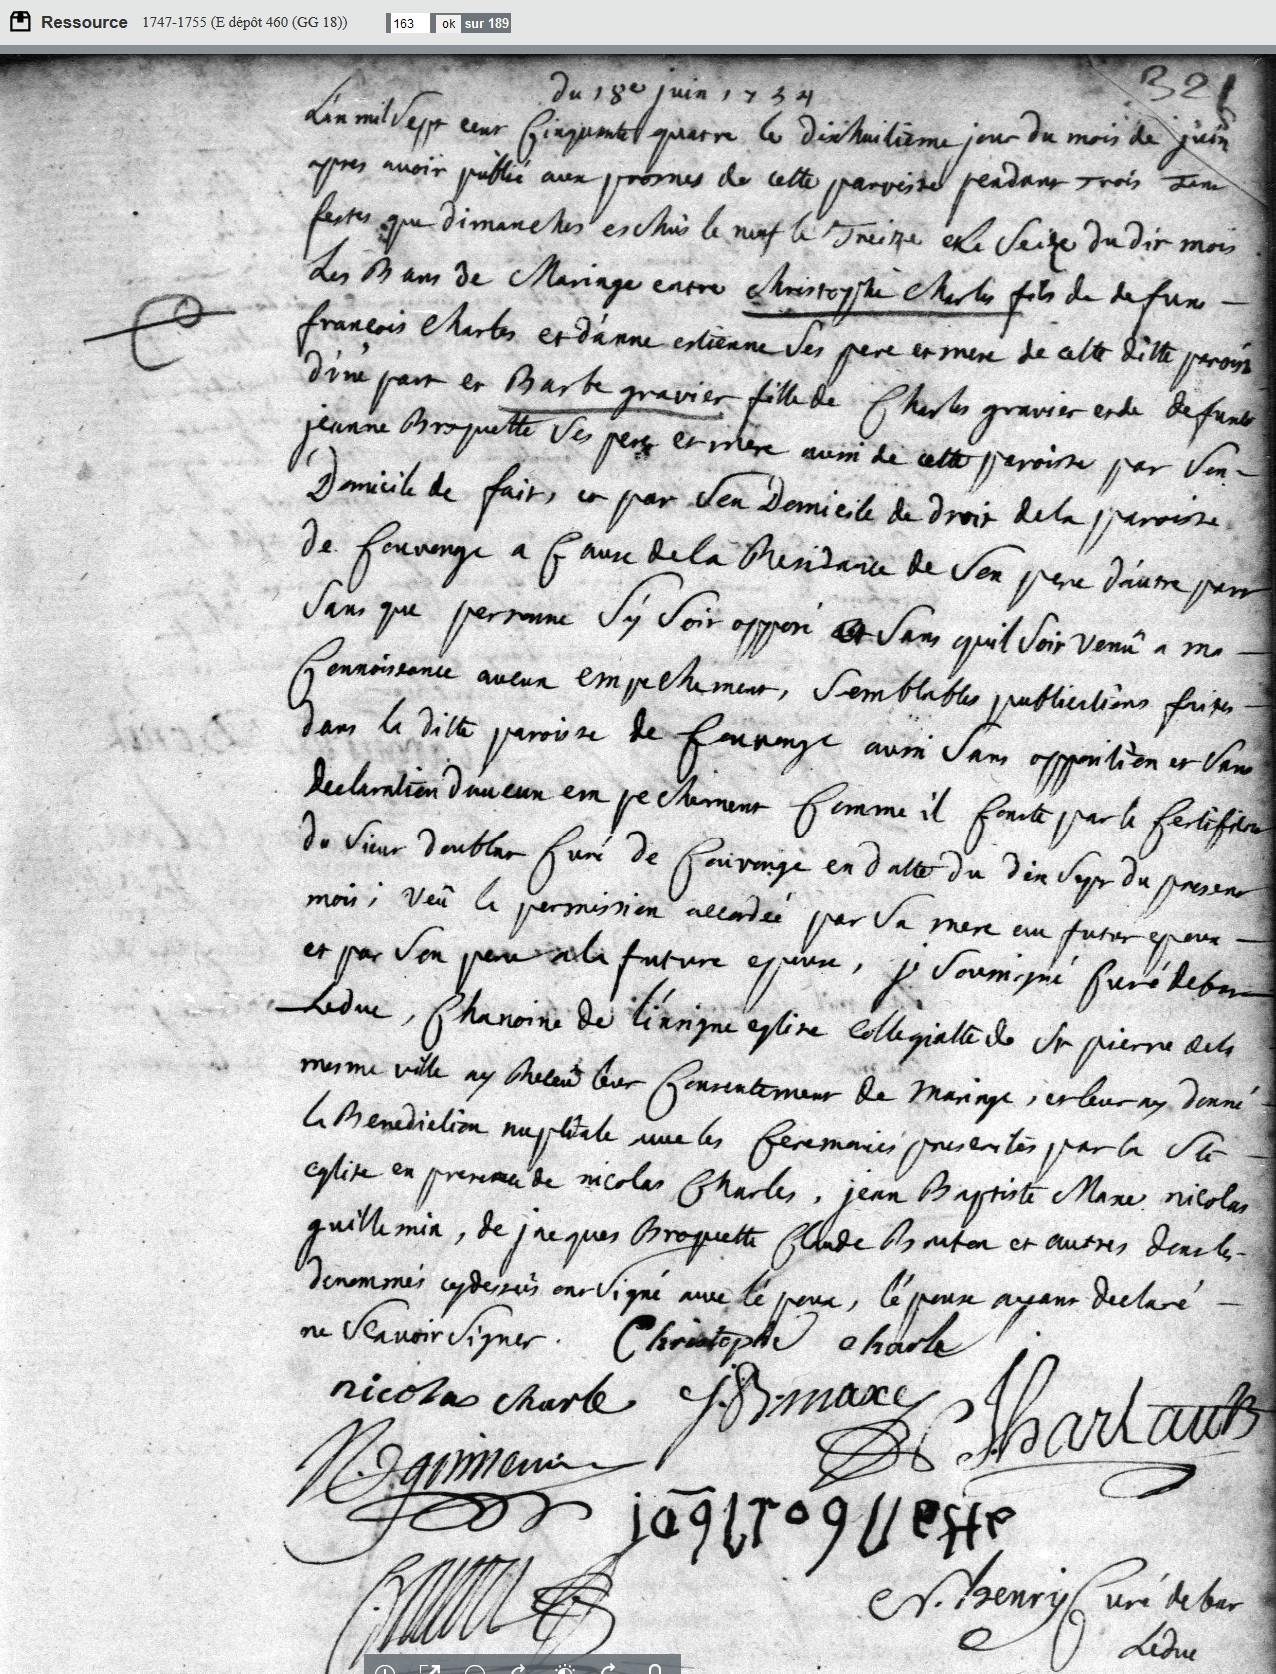 Ressource 1747-1755 (E dépôt 460 (GG 18)) 163 ok sur 189
321
du 18e juin 1754
L'an mil sept cent cinquante quatre le dixhuitieme jour du mois de juin
apres avoir publié aux prosnes de cette paroisse pendant trois tant
festes que dimanches eschus le neuf le Treize et le Seize dudit mois
Les Bans de Mariage entre christophe charles fils de defunt
françois charles et d'anne estienne Ses pere et mere de cette ditte paroisse
d'une part et Barbe gravier fille de Charles gravier et de defunte
jeanne Broquette Ses pere et mere aussi de cette paroisse par Son
Domicile de fait, et par Son Domicile de droit de la paroisse
de Couvonge a Cause de la Residance de Son pere d'autre part
Sans que personne S'y Soit opposé et Sans quil Soit venu a ma
Connoissance aucun empechement, Semblables publications faites
dans la ditte paroisse de Couvonge aussi Sans opposition et Sans
declaration d'aucun empechement Comme il Conste par le Certificat
du Sieur doublat Curé de Couvonge en datte du dix Sept du present
mois; veu la permission accordéé par Sa mere au futur epoux
et par Son pere a la future epouse, je Soussigné Curé de bar
Leduc, Chanoine de l'insigne eglise Collegiatte de St pierre de la
mesme ville ay Receu leur Consentement de Mariage, et leur ay donné
la Benediction nuptiale avec les Ceremonies prescrites par la Ste
eglise en presence de nicolas Charles, jean Baptiste Maxe nicolas
guillemin, de jacques Broquette Claude Bouton et autres dont les
denommés cydessus ont Signé avec l'epoux, l'epouse ayant declaré
ne Scavoir Signer. Christophe charle
nicolas charle J.B. maxe
jaq broquette
N. henry Curé de bar
Leduc